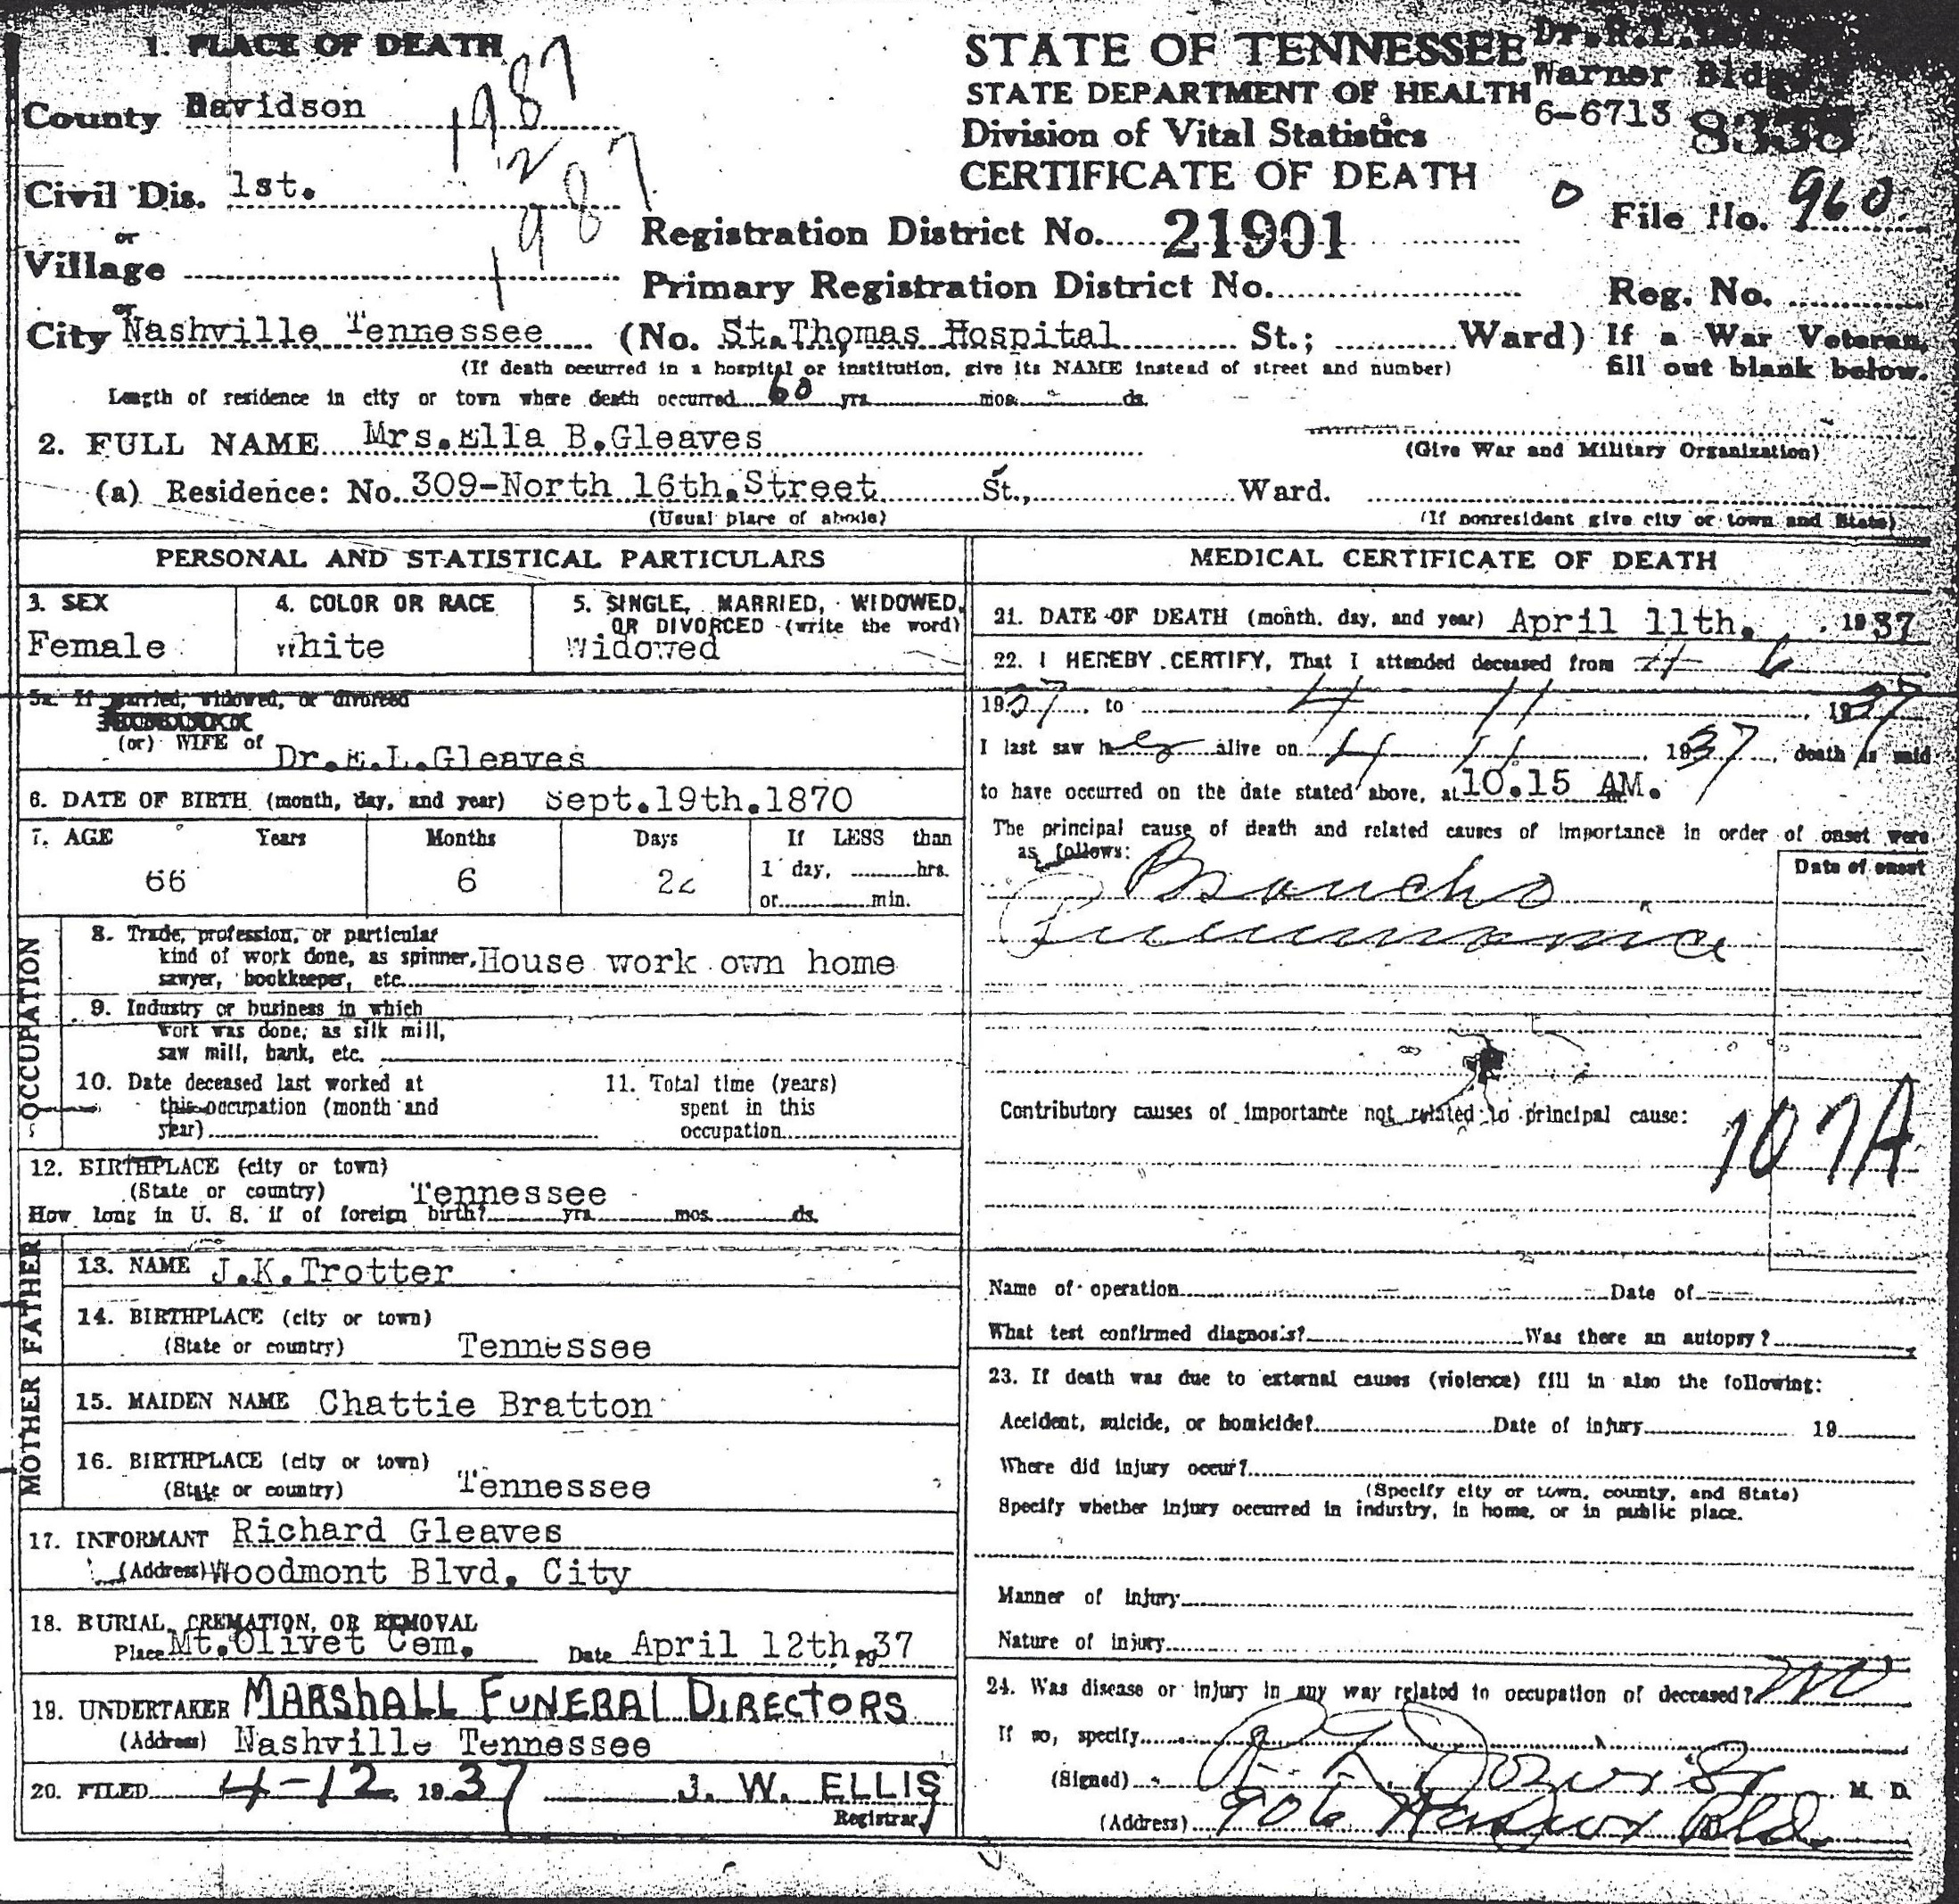 1. PLACE OF DEATH
County Davidson
1987
12
1987
Civil Dis. 1st.
or
Village
or
City Nashville Tennessee (No. St.Thomas Hospital St.; Ward)
(If death occurred in a hospital or institution, give its NAME instead of street and number)
Length of residence in city or town where death occurred 60 yrs. mos. ds.
STATE OF TENNESSEE
STATE DEPARTMENT OF HEALTH
Division of Vital Statistics
CERTIFICATE OF DEATH
Registration District No. 21901
Primary Registration District No.
Warner Bldg
6-6713
File No. 960
Reg. No.
If a War Veteran,
fill out blank below.
(Give War and Military Organization)
2. FULL NAME Mrs.Ella B.Gleaves
(a) Residence: No. 309-North 16th.Street St., Ward.
(Usual place of abode)
(If nonresident give city or town and State)
PERSONAL AND STATISTICAL PARTICULARS
3. SEX
Female
4. COLOR OR RACE
White
5. SINGLE, MARRIED, WIDOWED,
OR DIVORCED (write the word)
Widowed
5a. If married, widowed, or divorced
(or) WIFE of
Dr.E.L.Gleaves
6. DATE OF BIRTH (month, day, and year) Sept.19th.1870
7. AGE Years Months Days If LESS than
66 6 22 1 day, hrs.
or min.
OCCUPATION
8. Trade, profession, or particular
kind of work done, as spinner, House work own home
sawyer, bookkeeper, etc.
9. Industry or business in which
work was done, as silk mill,
saw mill, bank, etc.
10. Date deceased last worked at
this occupation (month and
year)
11. Total time (years)
spent in this
occupation
12. BIRTHPLACE (city or town)
(State or country) Tennessee
How long in U. S. if of foreign birth? yrs. mos. ds.
FATHER
13. NAME J.K.Trotter
14. BIRTHPLACE (city or town)
(State or country) Tennessee
MOTHER
15. MAIDEN NAME Chattie Bratton
16. BIRTHPLACE (city or town)
(State or country) Tennessee
17. INFORMANT Richard Gleaves
(Address) Woodmont Blvd. City
18. BURIAL, CREMATION, OR REMOVAL
Place Mt.Olivet Cem. Date April 12th. 1937
19. UNDERTAKER MARSHALL FUNERAL DIRECTORS
(Address) Nashville Tennessee
20. FILED 4-12 1937 J. W. ELLIS
Registrar
MEDICAL CERTIFICATE OF DEATH
21. DATE OF DEATH (month, day, and year) April 11th. , 1937
22. I HEREBY CERTIFY, That I attended deceased from 4 6
1937, to 4 11, 1937
I last saw her alive on 4 11, 1937, death is said
to have occurred on the date stated above, at 10.15 AM.
The principal cause of death and related causes of importance in order of onset were
as follows:
Date of onset
Broncho
Pneumonia
Contributory causes of importance not related to principal cause:
107A
Name of operation Date of
What test confirmed diagnosis? Was there an autopsy?
23. If death was due to external causes (violence) fill in also the following:
Accident, suicide, or homicide? Date of injury 19
Where did injury occur?
(Specify city or town, county, and State)
Specify whether injury occurred in industry, in home, or in public place.
Manner of injury
Nature of injury
24. Was disease or injury in any way related to occupation of deceased? no
If so, specify
(Signed) M. D.
(Address) 906